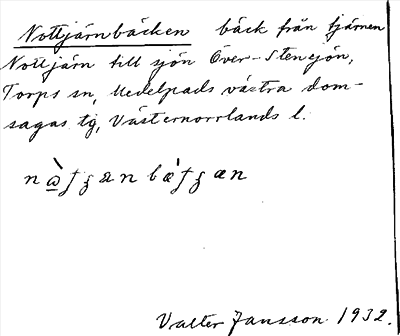 Nottjärnbäcken bäck från tjärnen
Nottjärn till sjön Över-Stensjön,
Torps sn, Medelpads västra dom-
sagas tg, Västernorrlands l.
Valter Jansson 1932.